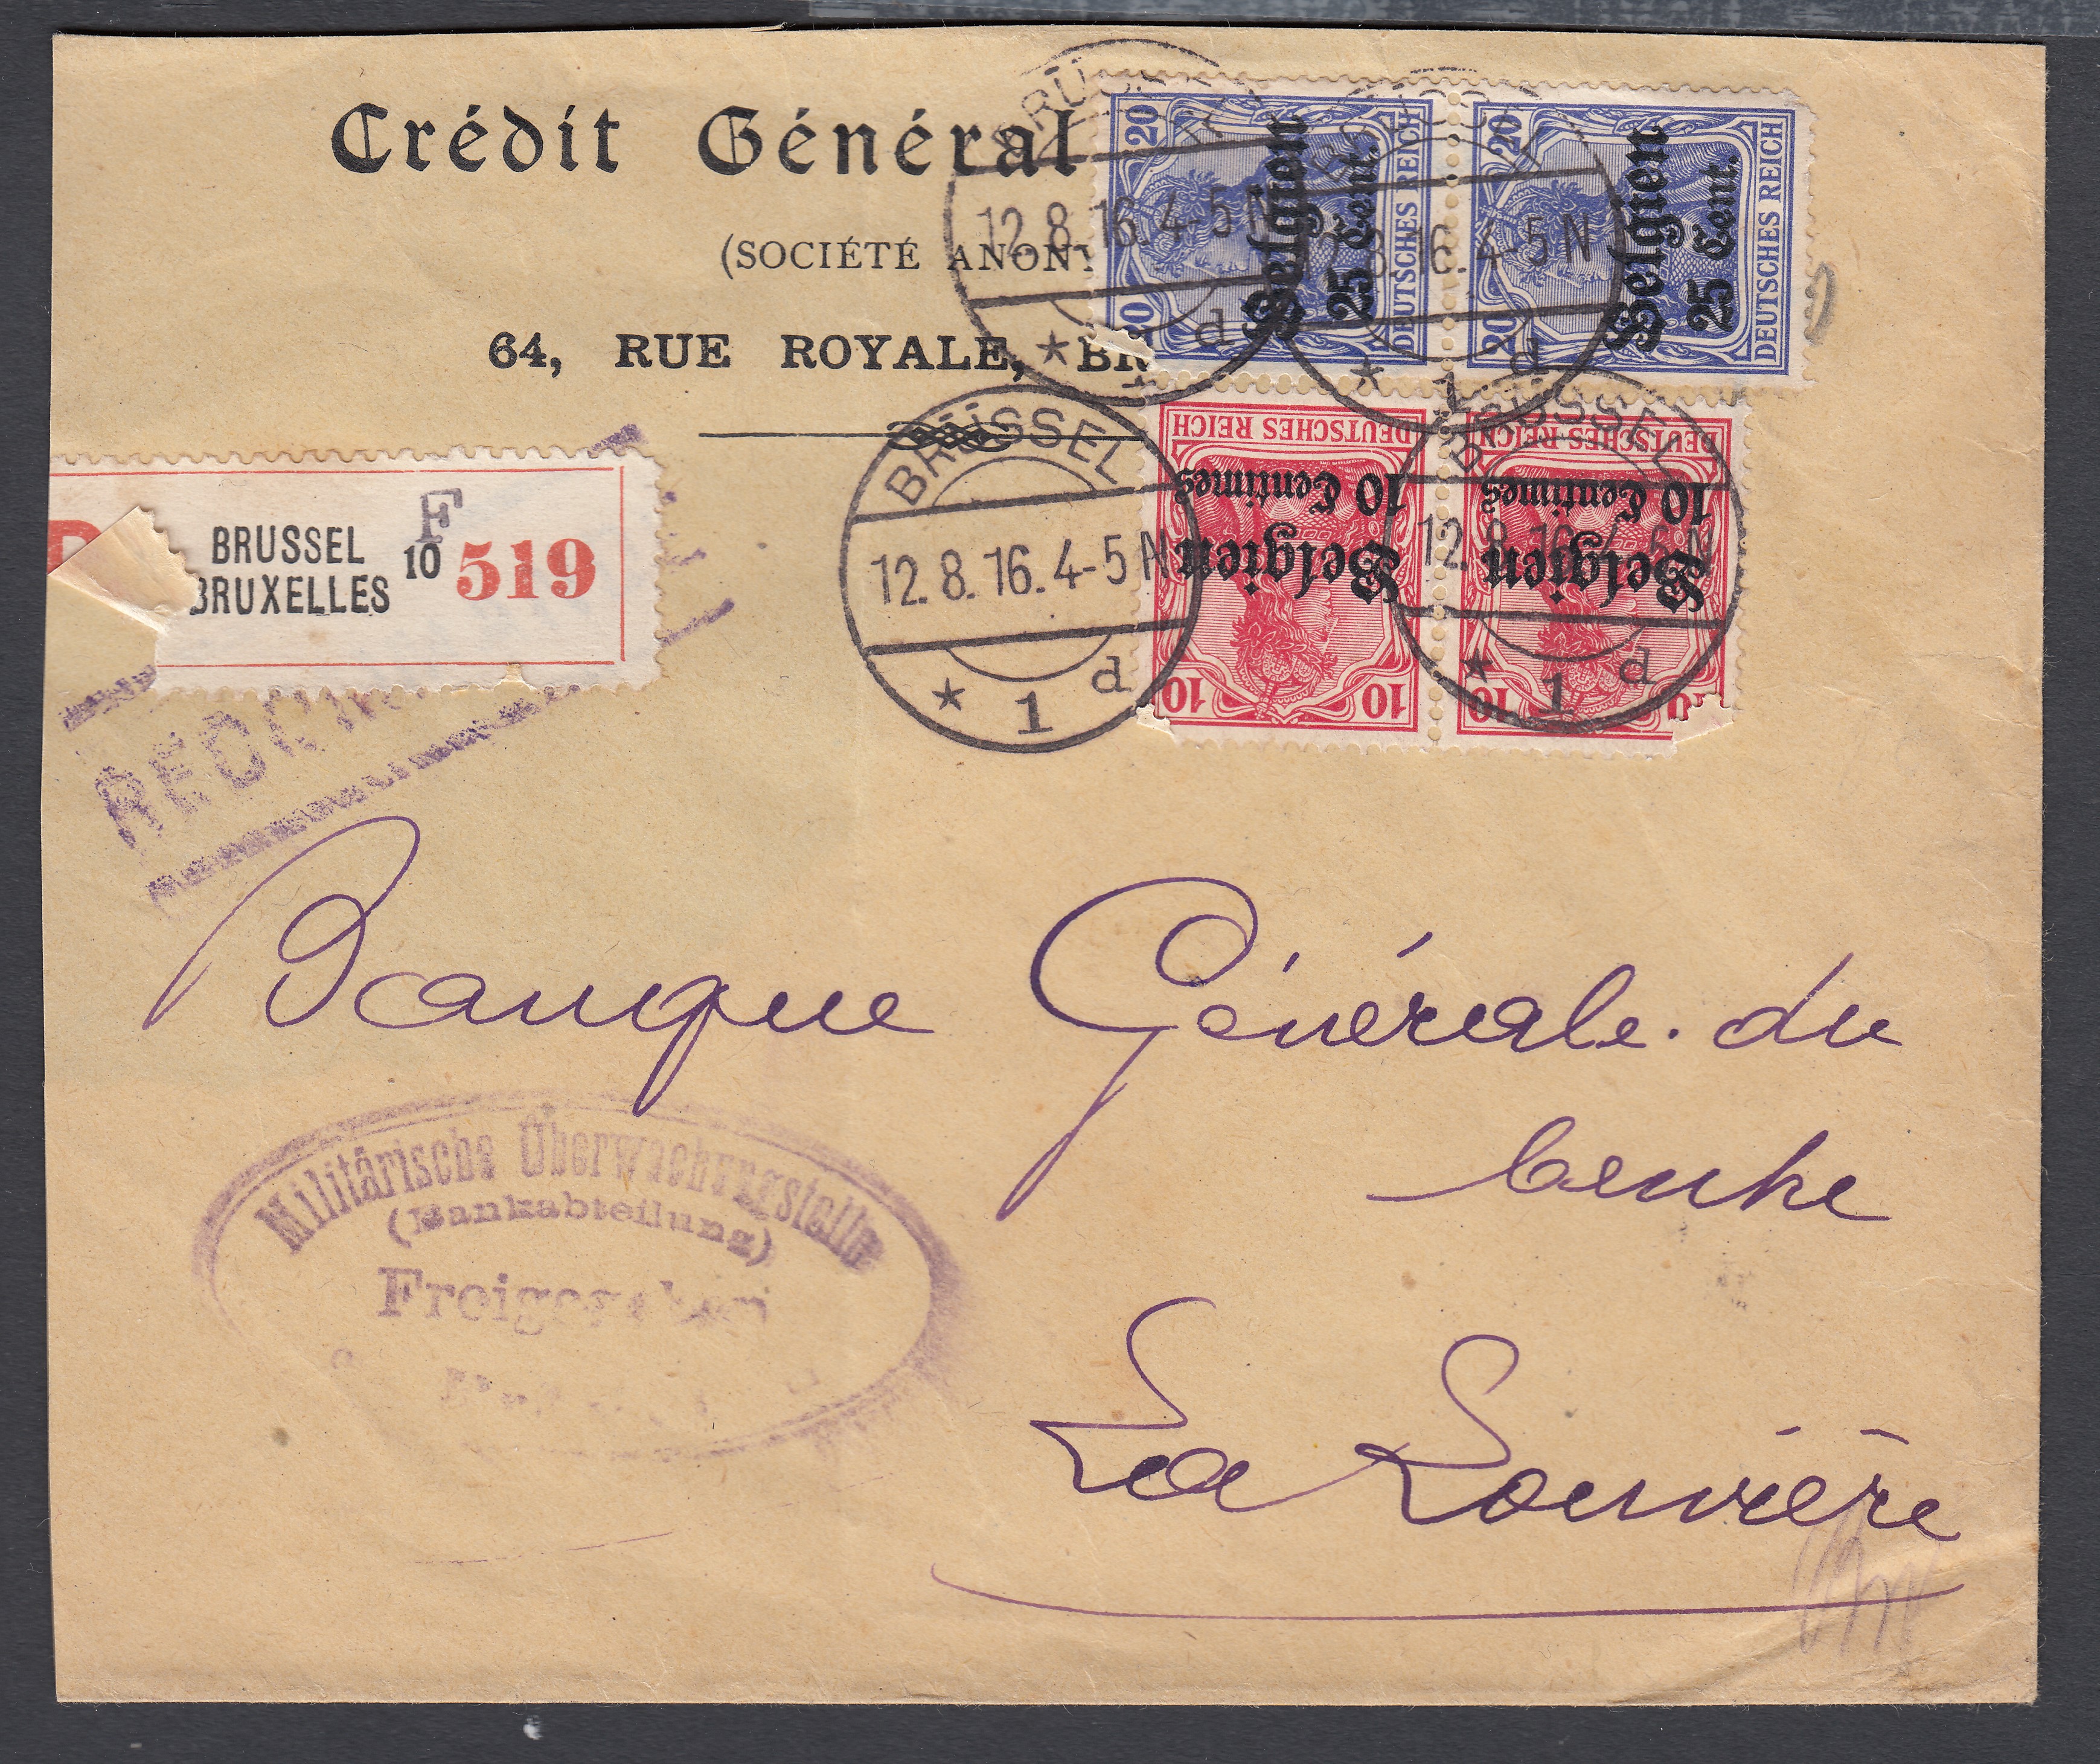 Crédit Général
(SOCIÉTÉ ANONY
64, RUE ROYALE, BR
BRÜSSEL
12.8.16.4-5N
* 1 d
BRÜSSEL
12.8.16.4-5N
* 1 d
20 20
Belgien
25 Cent.
DEUTSCHES REICH
20 20
Belgien
25 Cent.
DEUTSCHES REICH
BRÜSSEL
12.8.16.4-5N
* 1 d
BRÜSSEL
12.8.16.4-5N
* 1 d
DEUTSCHES REICH
10 Centimes
Belgien
10 10
DEUTSCHES REICH
10 Centimes
Belgien
10
BRUSSEL
BRUXELLES
10
F
519
Banque Générale du
Centre
La Louvière
Militärische Überwachungsstelle
(Bankabteilung)
Freigegeben